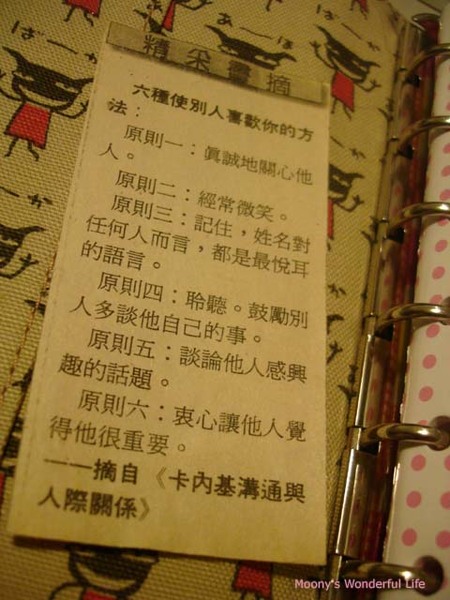 精采書摘
六種使別人喜歡你的方
法：
原則一：真誠地關心他
人。
原則二：經常微笑。
原則三：記住，姓名對
任何人而言，都是最悅耳
的語言。
原則四：聆聽。鼓勵別
人多談他自己的事。
原則五：談論他人感興
趣的話題。
原則六：衷心讓他人覺
得他很重要。
——摘自《卡內基溝通與
人際關係》
Moony's Wonderful Life